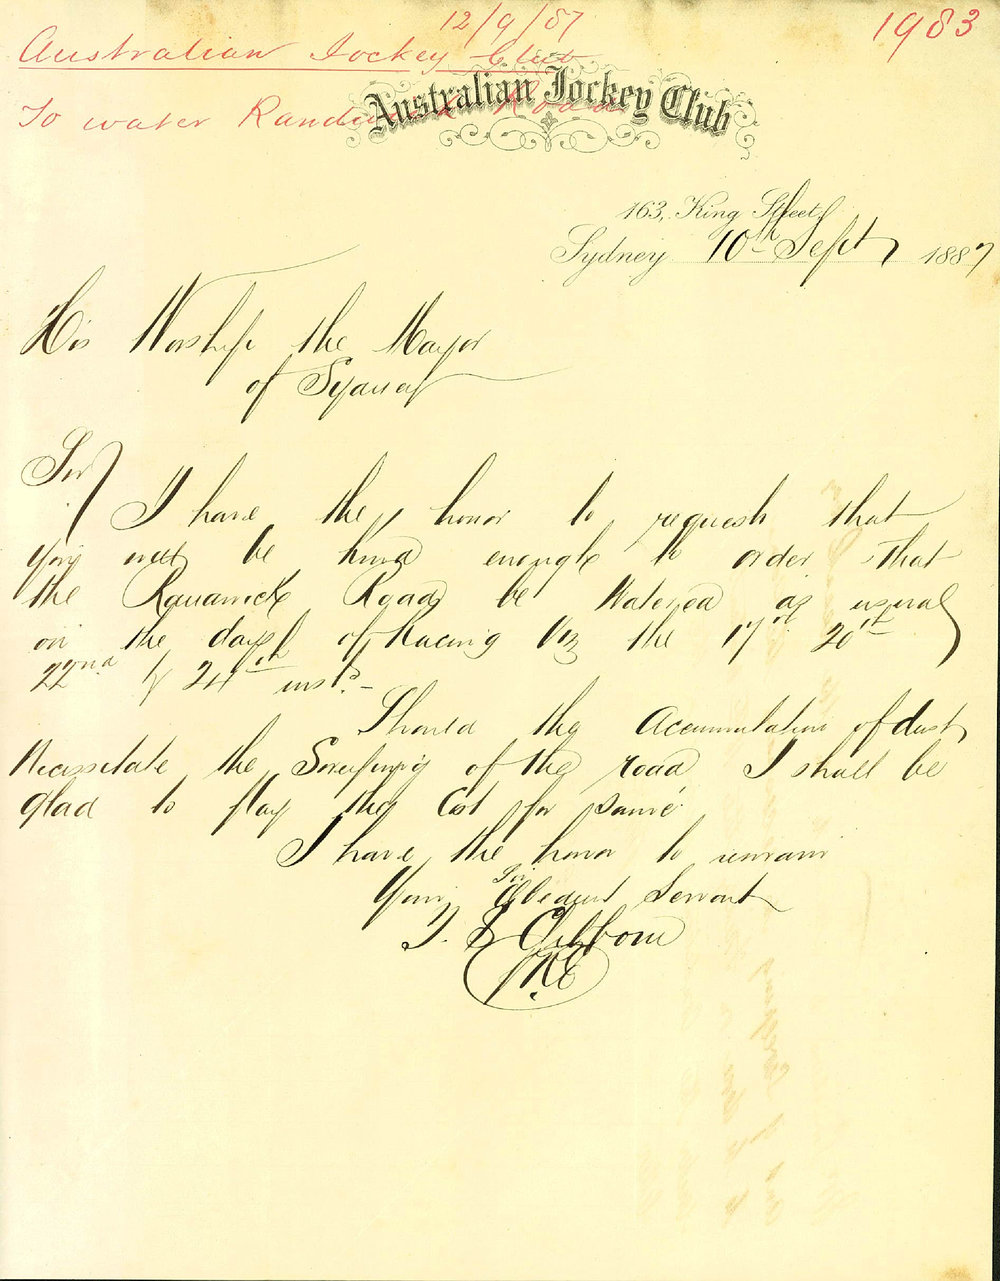 12/9/87
1983
Australian Jockey Club
To water Randwick Road
Australian Jockey Club
163, King Street,
Sydney 10th Sept 1887
His Worship the Mayor
of Sydney
Sir
I have the honor to request that
you will be kind enough to order that
the Randwick Road be Watered as usual
on the days of Racing Viz the 17th 20th
22nd & 24th inst.
Should the Accumulation of dust
Necessitate the Scraping of the road I shall be
glad to pay the Cost for same
I have the honor to remain
Sir
Your Obedient Servant
T. S. Clibborn